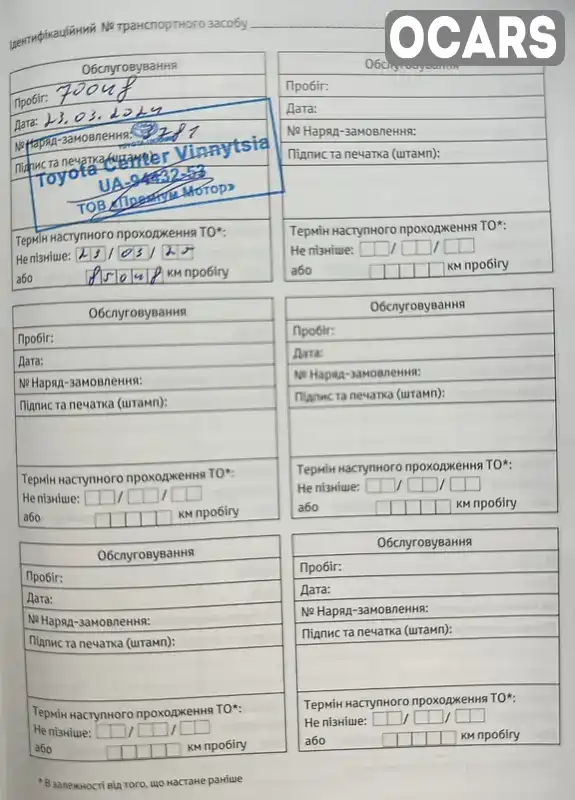 Ідентифікаційний № транспортного засобу
OCARS
Обслуговування
Пробіг: 70048
Дата: 23.03.2024
№ Наряд-замовлення: 3781
Підпис та печатка (штамп):
Toyota Center Vinnytsia
UA-94432-53
ТОВ «Преміум Мотор»
Термін наступного проходження ТО*:
Не пізніше: 23/03/25
або 85048 км пробігу
Обслуговування
Пробіг:
Дата:
№ Наряд-замовлення:
Підпис та печатка (штамп):
Термін наступного проходження ТО*:
Не пізніше: / /
або км пробігу
Обслуговування
Пробіг:
Дата:
№ Наряд-замовлення:
Підпис та печатка (штамп):
Термін наступного проходження ТО*:
Не пізніше: / /
або км пробігу
Обслуговування
Пробіг:
Дата:
№ Наряд-замовлення:
Підпис та печатка (штамп):
Термін наступного проходження ТО*:
Не пізніше: / /
або км пробігу
Обслуговування
Пробіг:
Дата:
№ Наряд-замовлення:
Підпис та печатка (штамп):
Термін наступного проходження ТО*:
Не пізніше: / /
або км пробігу
Обслуговування
Пробіг:
Дата:
№ Наряд-замовлення:
Підпис та печатка (штамп):
Термін наступного проходження ТО*:
Не пізніше: / /
або км пробігу
* В залежності від того, що настане раніше